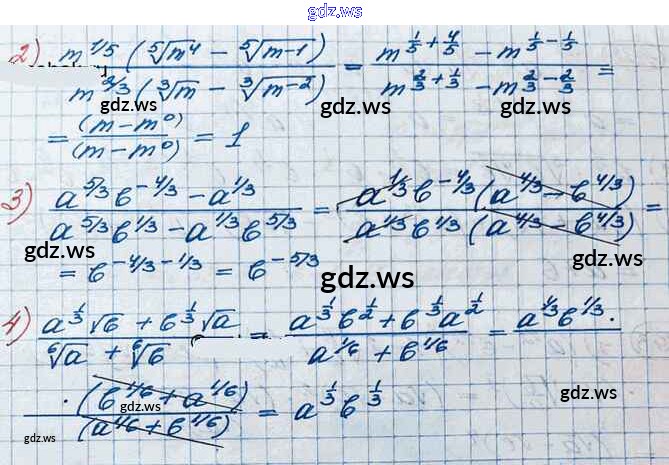 gdz.ws
2) m^{1/5} (\sqrt[5]{m^4} - \sqrt[5]{m-1}) / m^{2/3} (\sqrt[3]{m} - \sqrt[3]{m-2}) = m^{1/5 + 4/5} - m^{1/5 - 1/5} / m^{2/3 + 1/3} - m^{2/3 - 2/3} =
gdz.ws gdz.ws gdz.ws
= (m - m^0) / (m - m^0) = 1
3) a^{5/3} b^{-4/3} - a^{1/3} / a^{5/3} b^{1/3} - a^{1/3} b^{5/3} = a^{1/3} b^{-4/3} (a^{4/3} - b^{4/3}) / a^{1/3} b^{1/3} (a^{4/3} - b^{4/3}) =
gdz.ws gdz.ws
= b^{-4/3 - 1/3} = b^{-5/3}
gdz.ws
4) a^{1/3} \sqrt{b} + b^{1/3} \sqrt{a} / \sqrt[6]{a} + \sqrt[6]{b} = a^{1/3} b^{1/2} + b^{1/3} a^{1/2} / a^{1/6} + b^{1/6} = a^{1/3} b^{1/3} ·
· (b^{1/6} + a^{1/6}) / (a^{1/6} + b^{1/6}) = a^{1/3} b^{1/3}
gdz.ws gdz.ws
gdz.ws